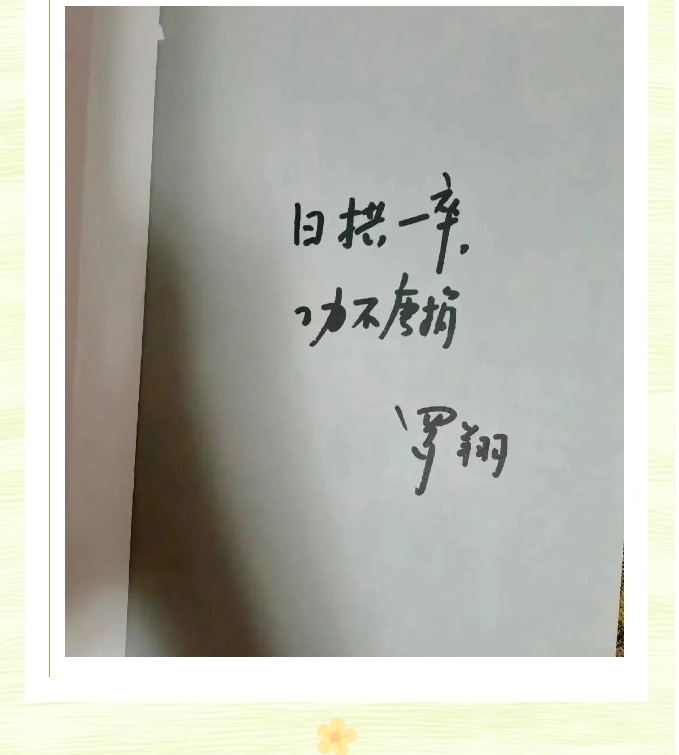 日拱一卒,
功不唐捐
罗翔